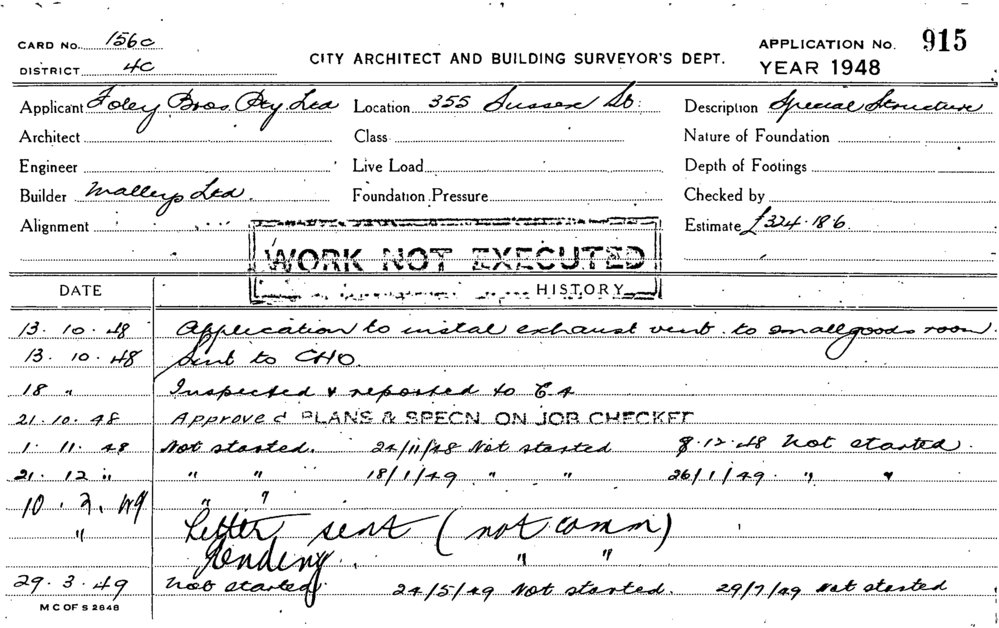 CARD No. 156c
CITY ARCHITECT AND BUILDING SURVEYOR'S DEPT.
APPLICATION No. 915
DISTRICT 4C
YEAR 1948
Applicant Foley Bros. Pty. Ltd Location 355 Sussex St: Description Special Structure
Architect Class Nature of Foundation
Engineer Live Load Depth of Footings
Builder Malleys Ltd. Foundation Pressure Checked by
Alignment Estimate £324.18.6
WORK NOT EXECUTED
DATE HISTORY
13.10.48 Application to instal exhaust vent. to smallgoods room.
13.10.48 Sent to CHO.
18 " Inspected & reported to C.A
21.10.48 Approved PLANS & SPECN. ON JOB CHECKET
1.11.48 Not started. 24/11/48 Not started 8.12.48 Not started.
21.12 " " " 18/1/49 " " 26/1/49. " "
10.2.49 " "
" Letter sent (not comm)
Pending. " "
29.3.49 Not started. 24/5/49 Not started. 29/7/49 Not started
M C OF S 2848